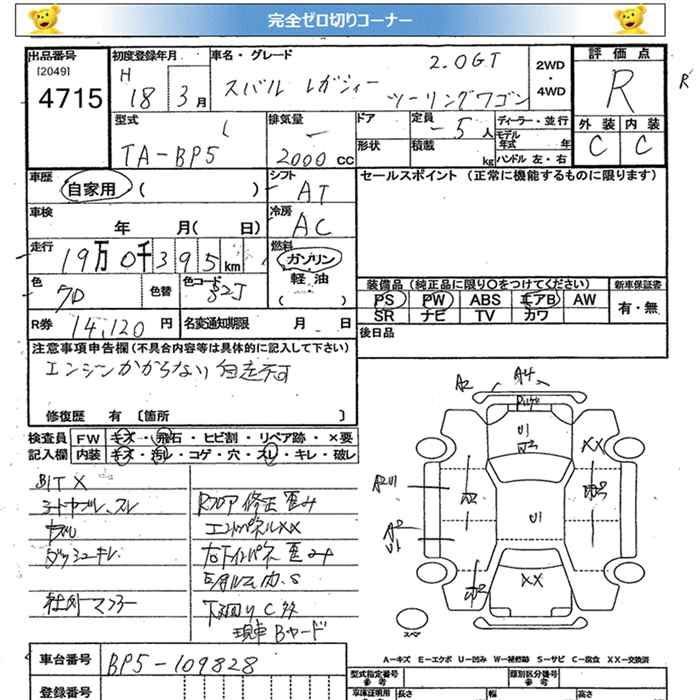 完全ゼロ切りコーナー
出品番号
[2049]
4715
初度登録年月
H
18 3月
車名・グレード
スバル レガシィー
2.0GT
ツーリングワゴン
2WD
・
4WD
評価点
R
R
外装 内装
C C
型式
TA-BP5
排気量
2000 cc
ドア
形状
定員
5人
積載
kg
ディーラー・並行
モデル
年式 年
ハンドル 左・右
車歴
自家用 ( )
シフト
AT
セールスポイント (正常に機能するものに限ります)
車検
年 月( 日)
冷房
AC
走行
19万0千395km
燃料
ガソリン
軽油
( )
色
色替
色コード
52J
装備品 (純正品に限り○をつけてください)
新車保証書
PS PW ABS エアB AW
有・無
SR ナビ TV カワ
R券
14,120 円
名変通知期限 月 日
後日品
注意事項申告欄 (不具合内容等は具体的に記入して下さい)
エンジンかからない 自走不可
修復歴 有 〔箇所 〕
検査員 FW キズ・飛石・ヒビ割・リペア跡・×要
記入欄 内装 キズ・汚レ・コゲ・穴・スレ・キレ・破レ
Rフロア 修正 歪み
エンドパネルXX
社外マフラー
下廻りC多
現車Bヤード
A2 A4
U1
XX
A2U1
U1
XX
スペア
A-キズ E-エクボ U-凹み W-補修跡 S-サビ C-腐食 XX-交換済
車台番号
BP5-109828
登録番号
型式指定番号
参考
類別区分番号
参考
長さ 幅 高さ